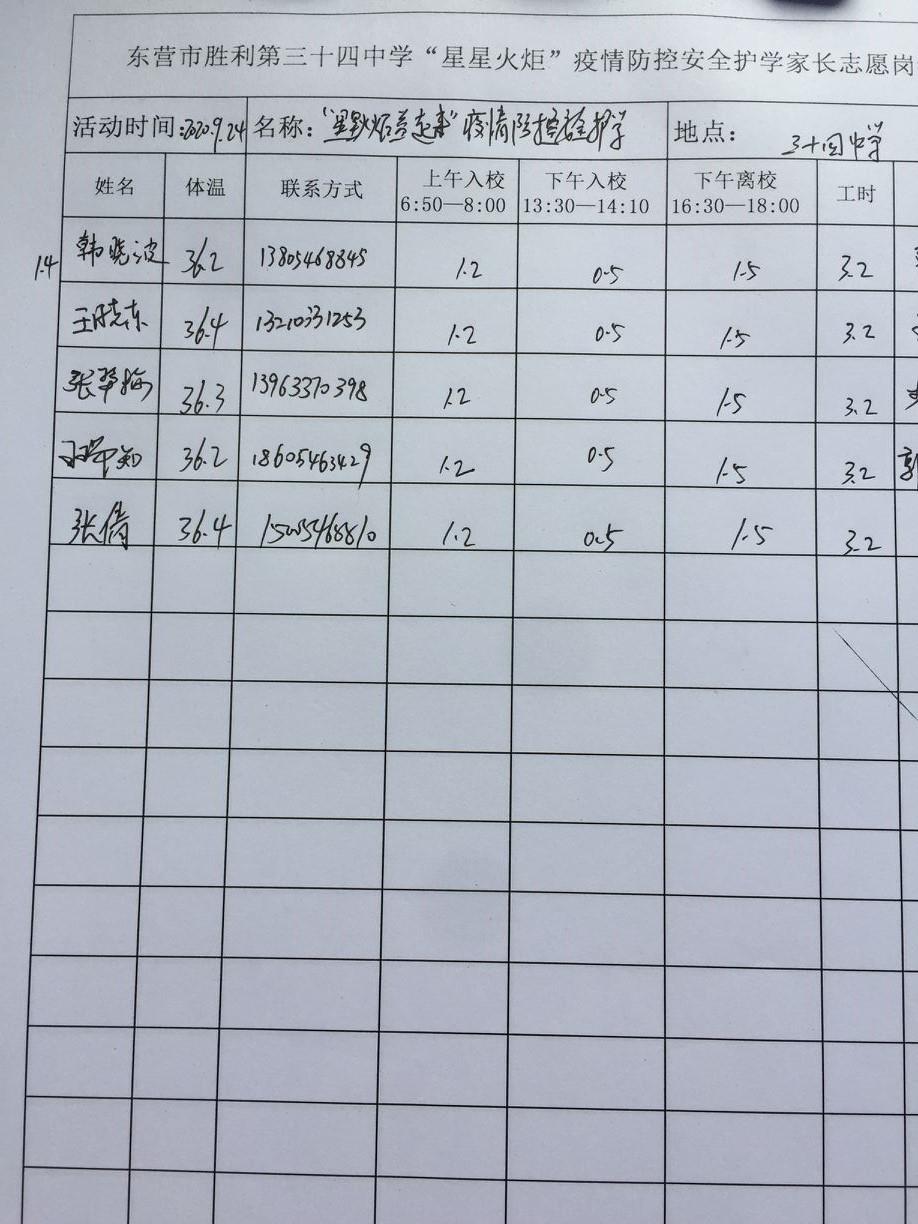 东营市胜利第三十四中学“星星火炬”疫情防控安全护学家长志愿岗
活动时间:2020.9.24 名称: 疫情防控 护学 地点: 三十四中学
姓名 体温 联系方式 上午入校 6:50—8:00 下午入校 13:30—14:10 下午离校 16:30—18:00 工时
1.4 韩晓波 36.2 13805468845 1.2 0.5 1.5 3.2
王晓东 36.4 13210331253 1.2 0.5 1.5 3.2
张翠梅 36.3 13963370398 1.2 0.5 1.5 3.2
36.2 18605463429 1.2 0.5 1.5 3.2
张倩 36.4 1.2 0.5 1.5 3.2